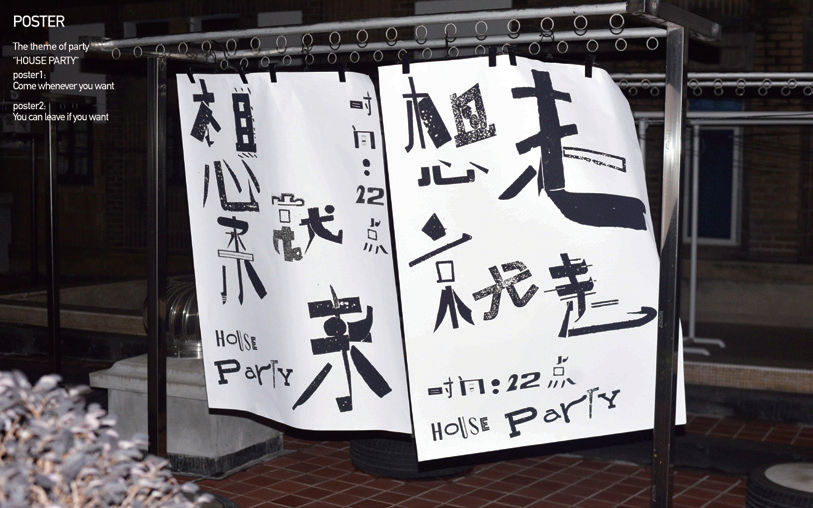 POSTER
The theme of party
"HOUSE PARTY"
poster1:
Come whenever you want
poster2:
You can leave if you want
想来
就来
时间:22点
HOUSE
Party
想走
就走
时间:22点
HOUSE Party